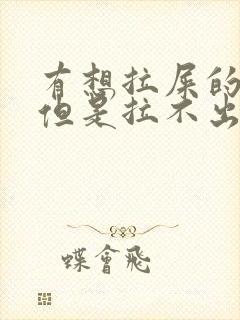 有想拉屎的
但是拉不出
蝶會飛